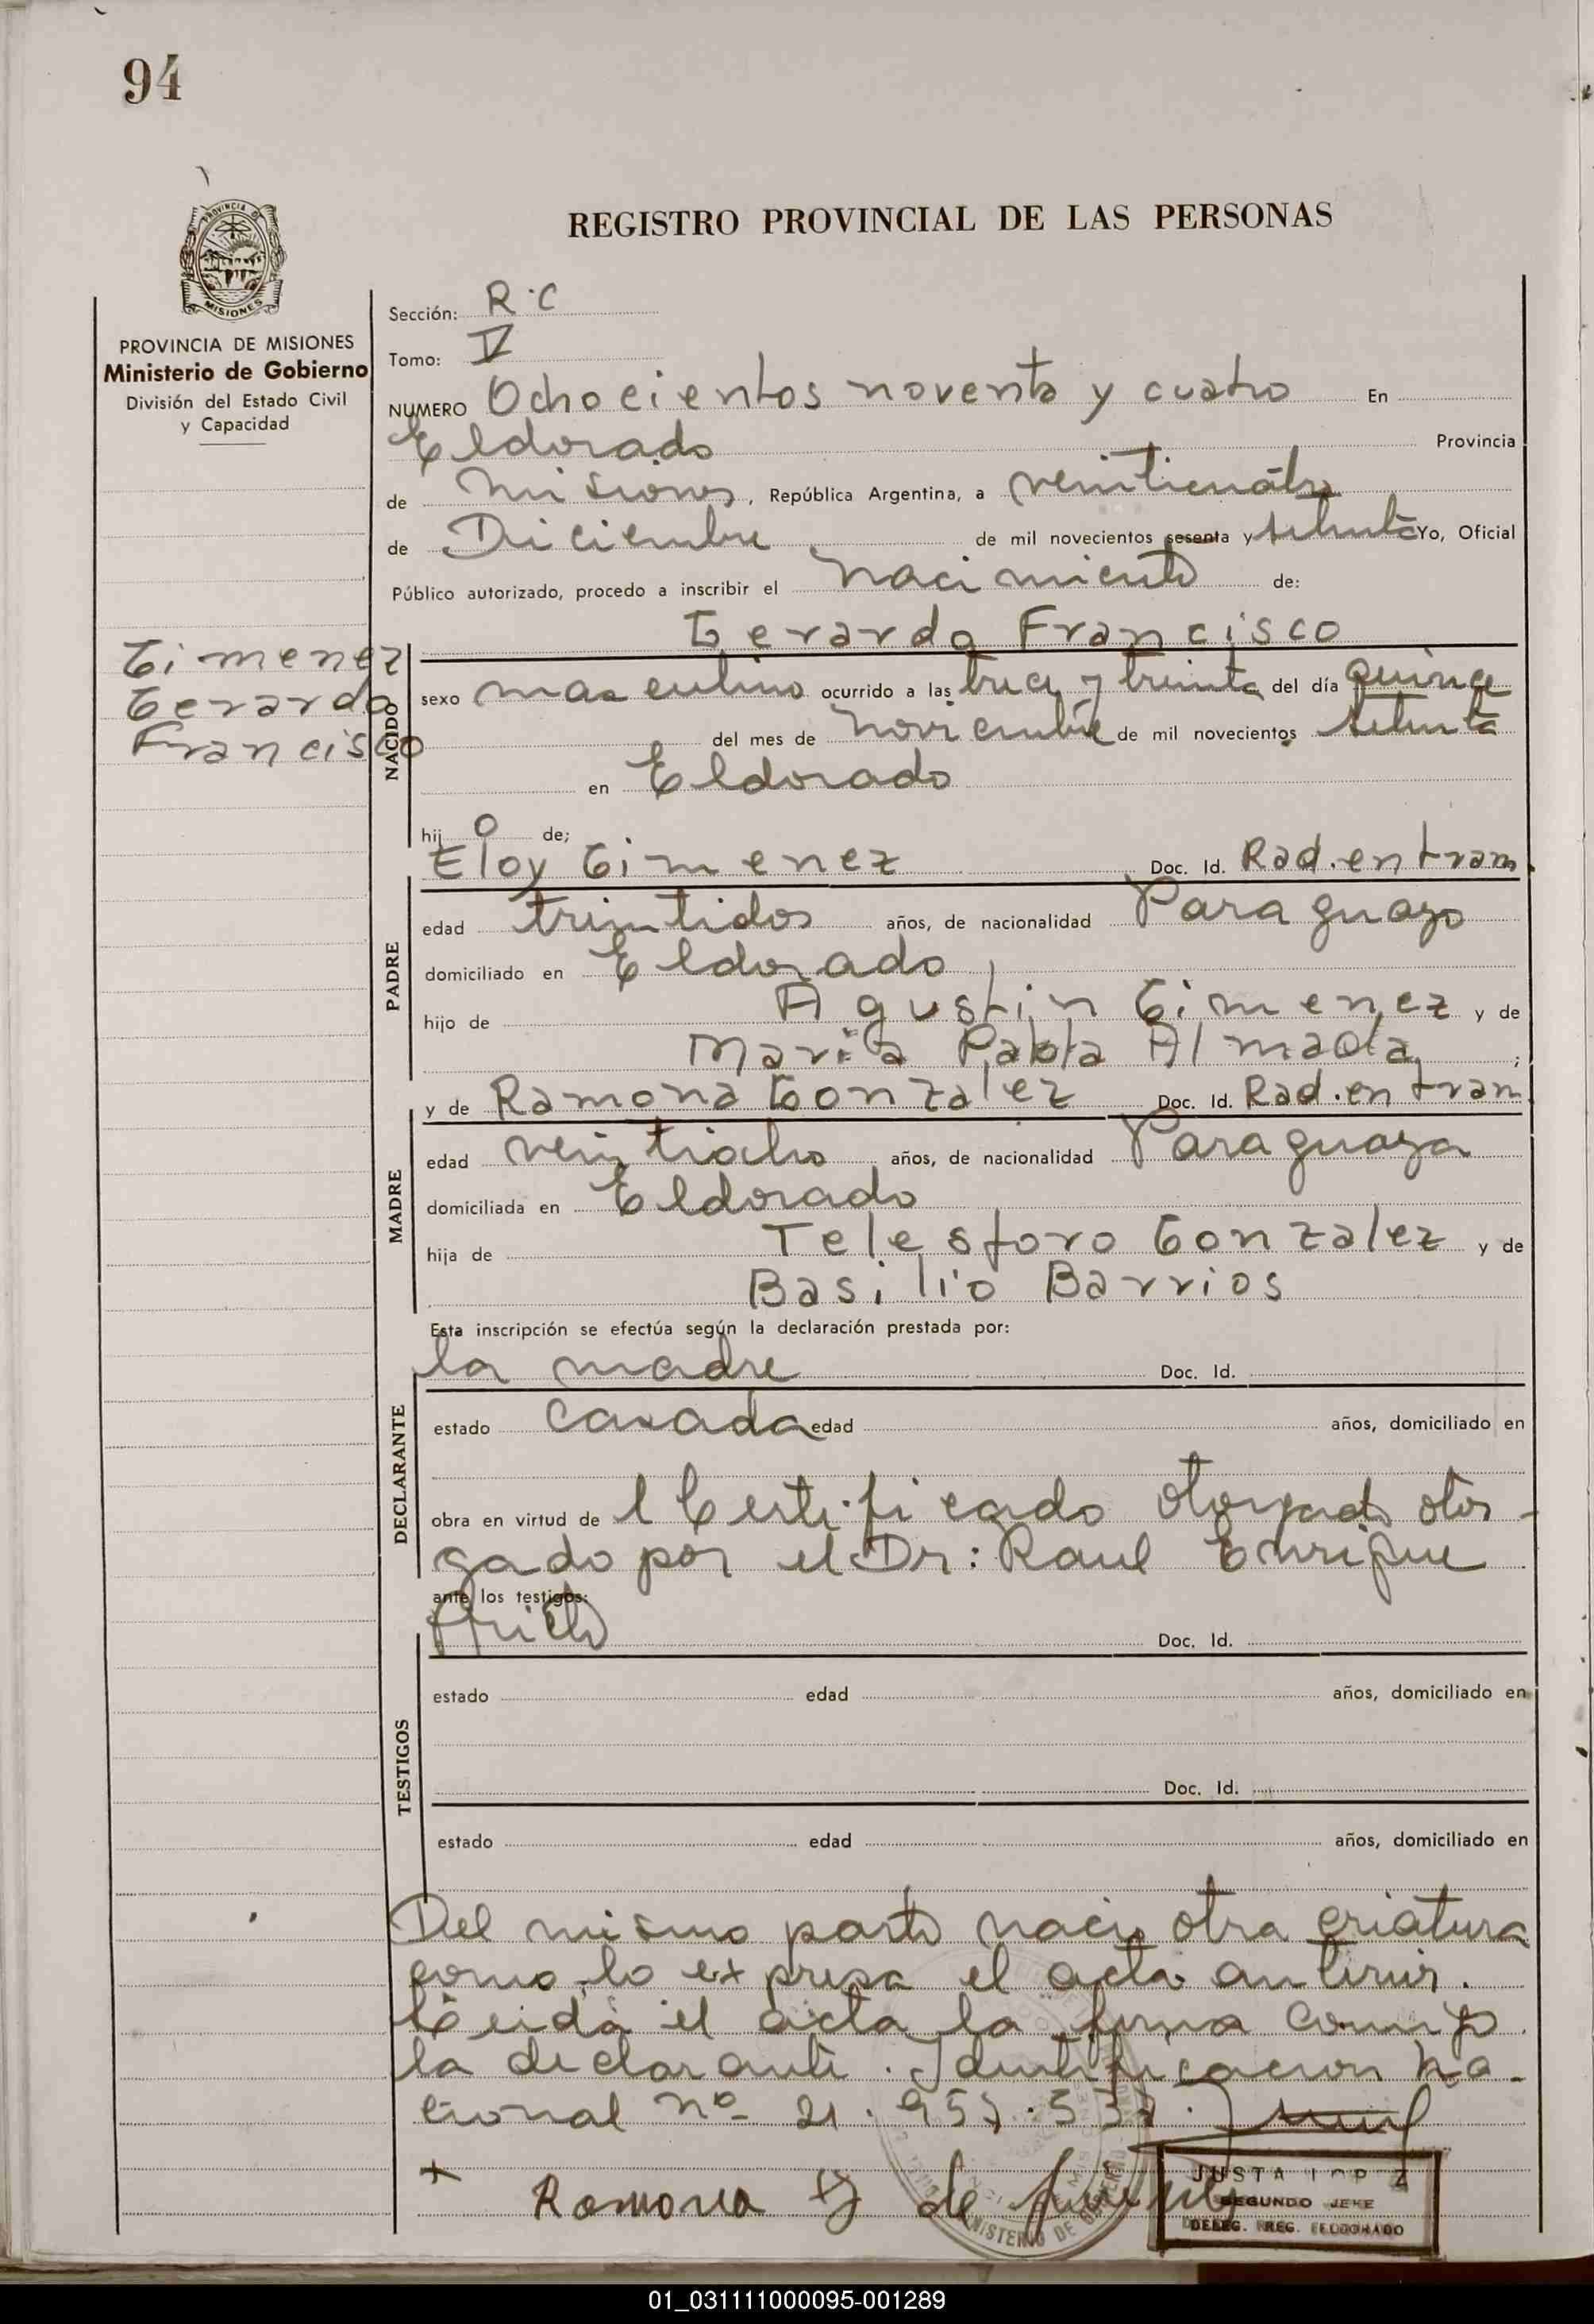 94
REGISTRO PROVINCIAL DE LAS PERSONAS
PROVINCIA DE MISIONES
Ministerio de Gobierno
División del Estado Civil
y Capacidad
Sección: R.C
Tomo: V
NUMERO Ochocientos noventa y cuatro En
Eldorado Provincia
de Misiones, República Argentina, a veinticuatro
de Diciembre de mil novecientos sesenta y setenta Yo, Oficial
Público autorizado, procedo a inscribir el Nacimiento de:
Gerardo Francisco
Gimenez
Gerardo
Francisco
NACIDO
sexo masculino ocurrido a las trece y treinta del día quince
del mes de Noviembre de mil novecientos setenta
en Eldorado
hij o de;
Eloy Gimenez Doc. Id. Rad. en tram.
PADRE
edad treintidos años, de nacionalidad Paraguayo
domiciliado en Eldorado
hijo de Agustin Gimenez y de
Maria Pabla Almada ;
y de Ramona Gonzalez Doc. Id. Rad. en tram
MADRE
edad veintiocho años, de nacionalidad Paraguaya
domiciliada en Eldorado
hija de Telesforo Gonzalez y de
Basilio Barrios
Esta inscripción se efectúa según la declaración prestada por:
la madre Doc. Id.
DECLARANTE
estado casada edad años, domiciliado en
obra en virtud de l Certificado otorgado otor-
gado por el Dr: Raul Enrique
ante los testigos:
Doc. Id.
TESTIGOS
estado edad años, domiciliado en
Doc. Id.
estado edad años, domiciliado en
Del mismo parto nacio otra criatura
como lo expresa el acta anterior.
Leida el acta la firma conmigo
la declarante. Identificacion Na-
cional nº 21.
Ramona G de Gimenez
JUSTA LOPEZ
SEGUNDO JEFE
DELEG. REG. ELDORADO
MINISTERIO DE GOBIERNO
01_031111000095-001289